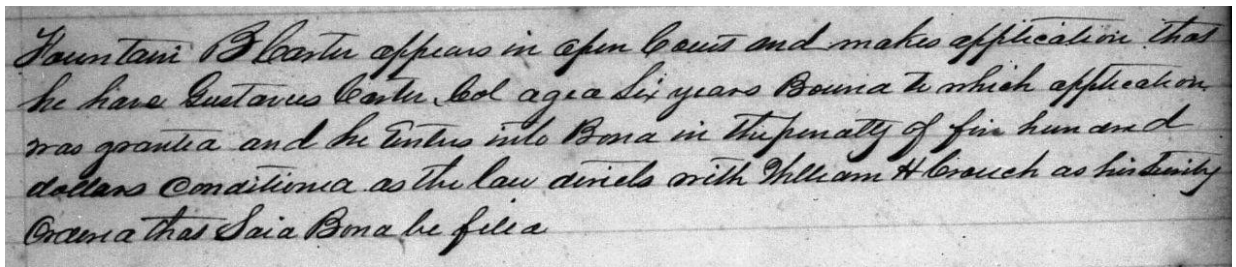 Fountain B Carter appears in open Court and makes application that
he have Gustavus Carter Col aged Six years Bound to which application
was granted and he Enters into Bond in the penalty of five hundred
dollars Conditioned as the law directs with William H Crouch as his Surity
Ordered that Said Bond be filed